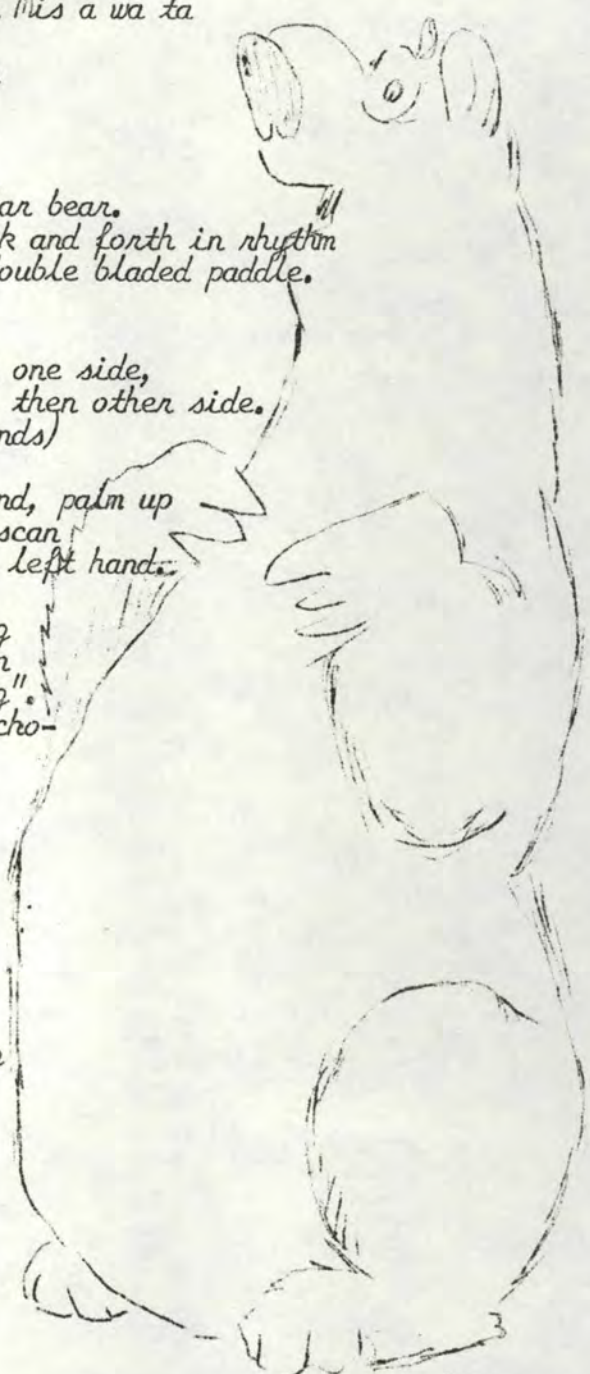 Mis a wa ta
ar bear.
k and forth in rhythm
ouble bladed paddle.
one side,
then other side.
nds)
nd, palm up
scan
left hand.
g
n
g".
cho-
e